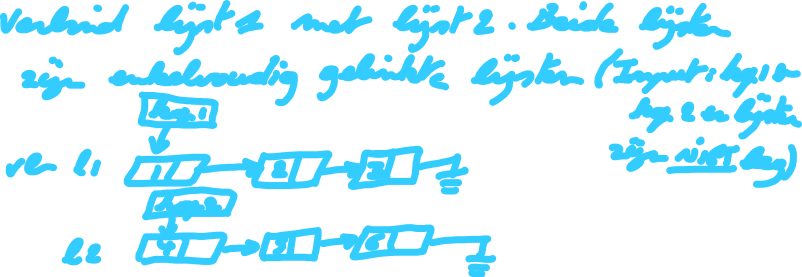 Verbind lijst 1 met lijst 2. Beide lijsten
zijn enkelvoudig gelinkte lijsten (Input: kop 1 en
kop 2 en lijsten
zijn NIET leeg)
kop 1
vb l1 1 2 3
kop 2
l2 4 5 6